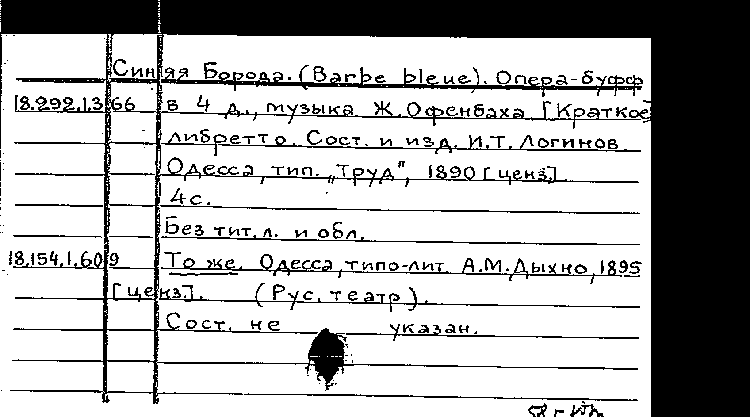 Синяя Борода. (Barbe bleue). Опера-буфф
18.292.1.366 в 4 д., музыка Ж. Офенбаха [Краткое]
либретто. Сост. и изд. И.Т. Логинов
Одесса, тип. „Труд", 1890 [ценз.].
4 с.
Без тит. л. и обл.
18.154.1.609 То же. Одесса, типо-лит. А.М. Дыхно, 1895
[ценз.]. (Рус. театр).
Сост. не указан.